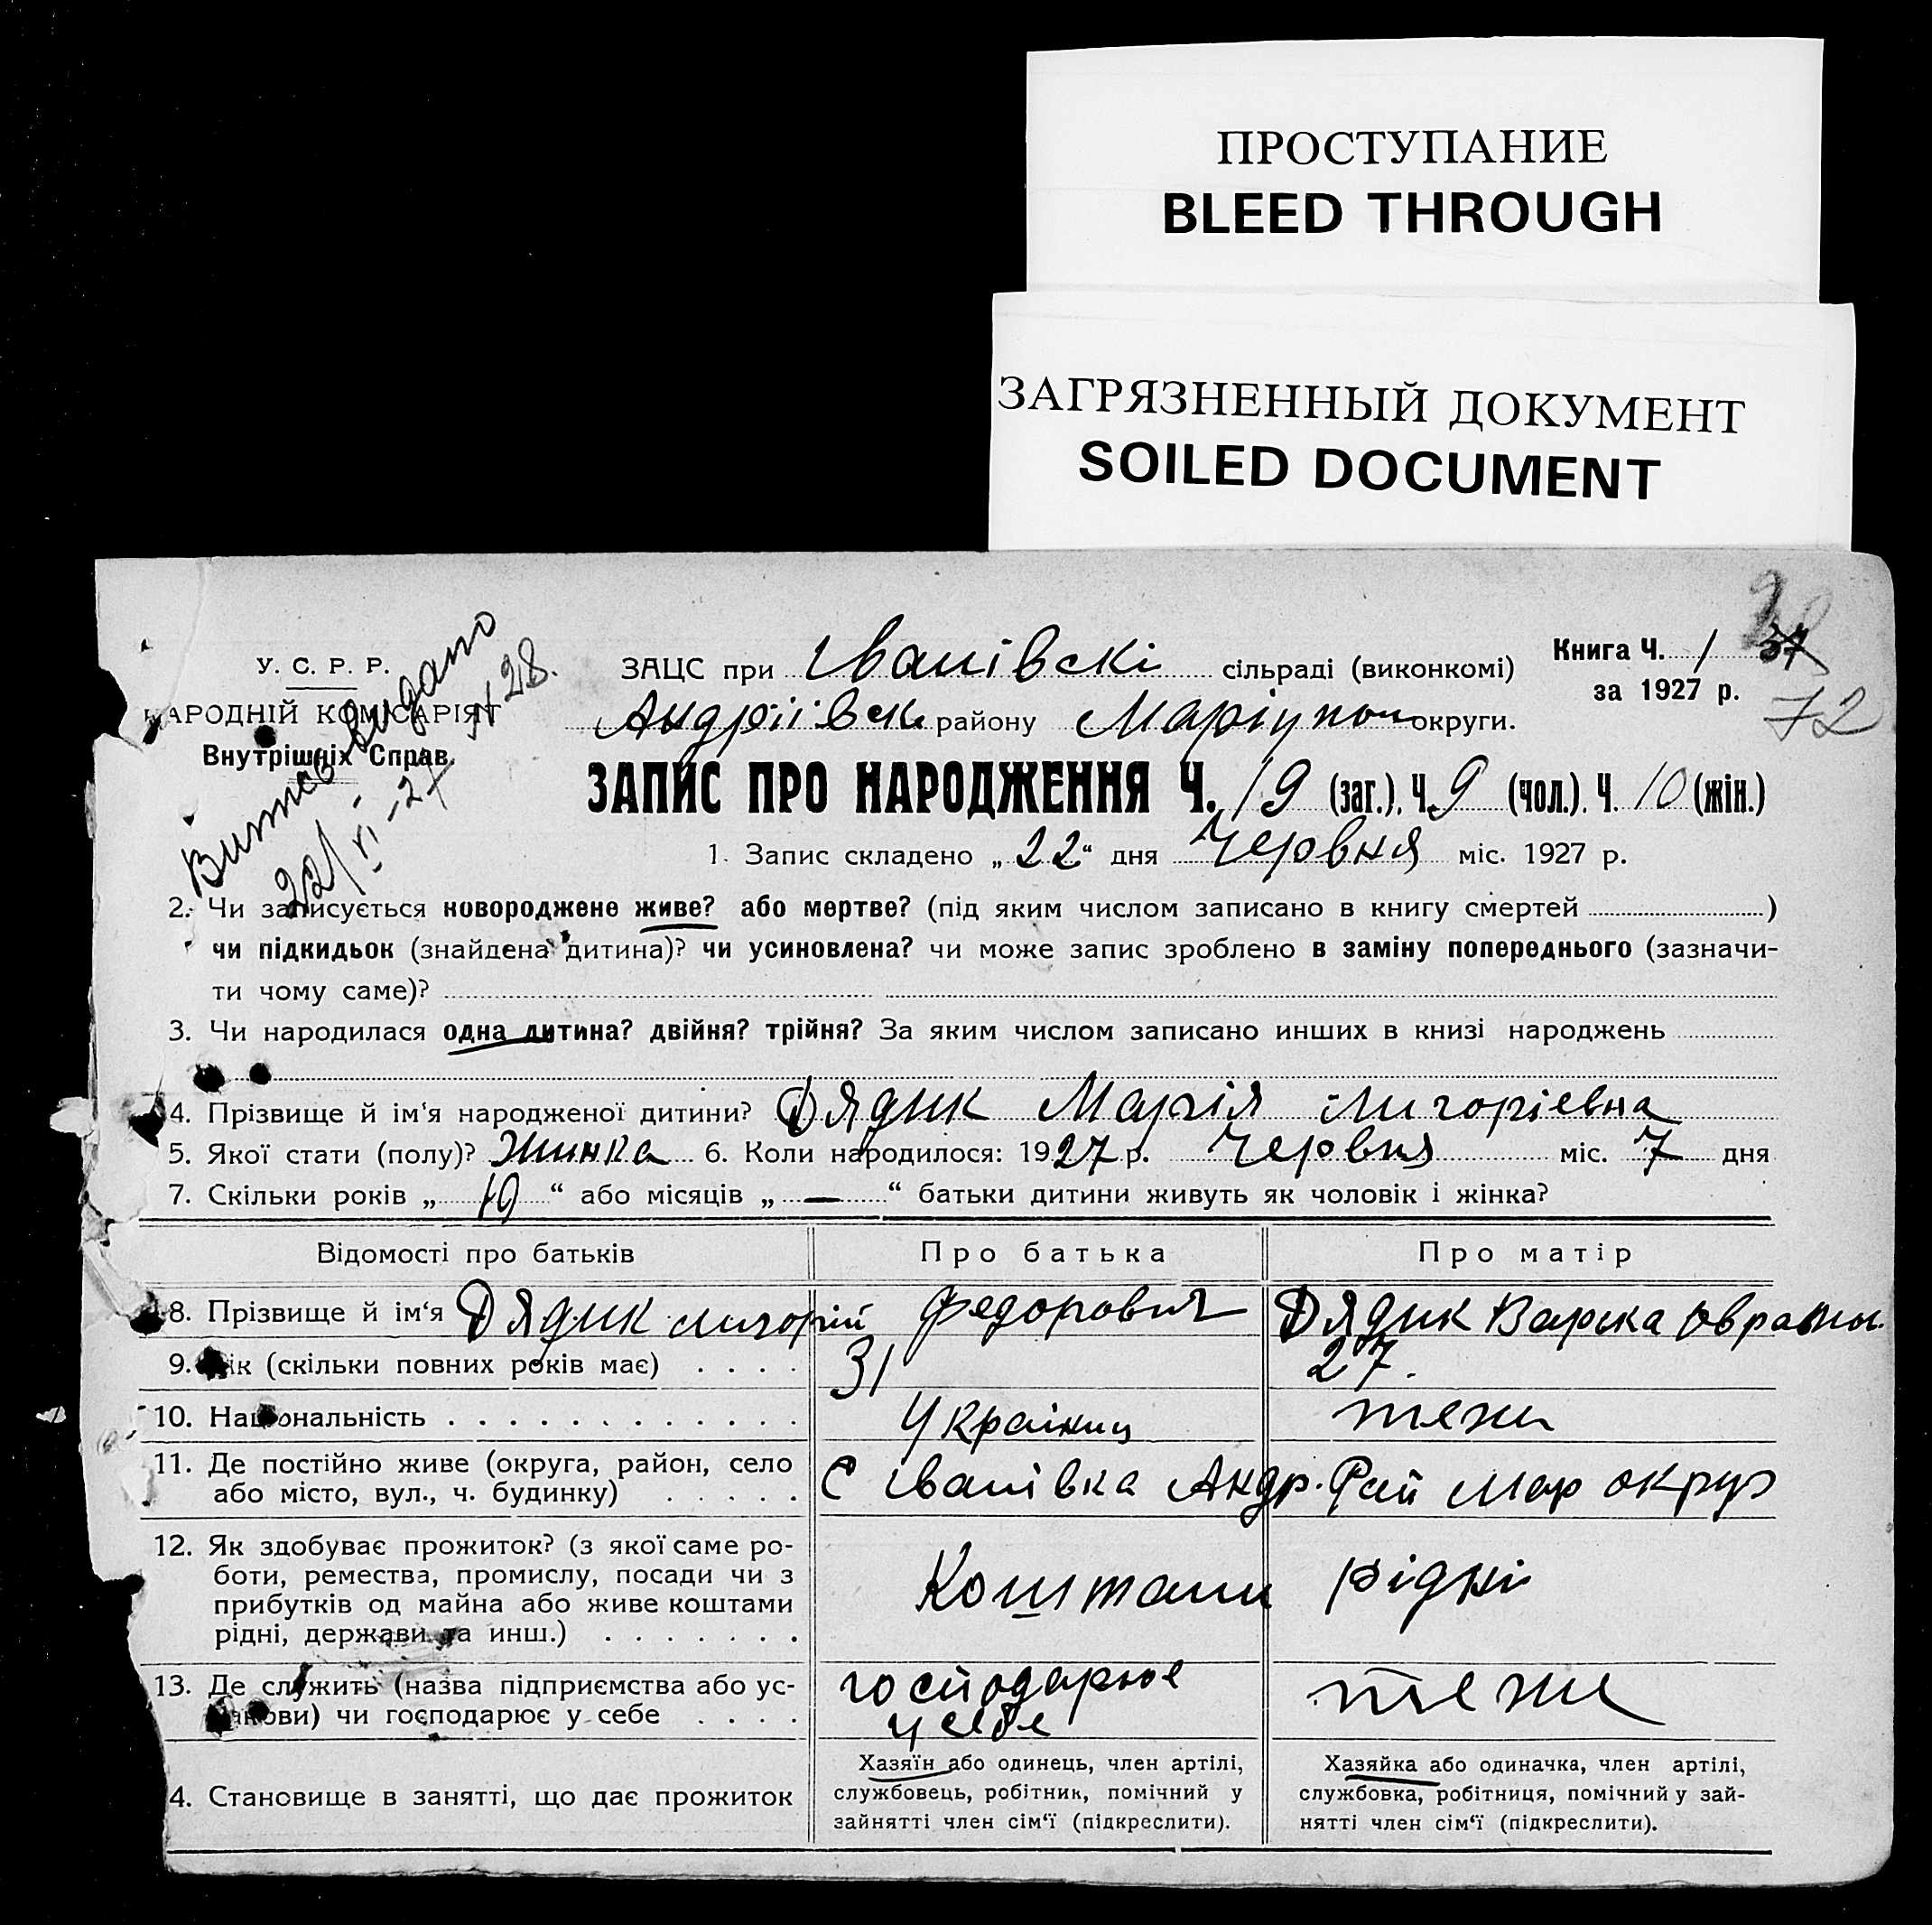 ПРОСТУПАНИЕ
BLEED THROUGH
ЗАГРЯЗНЕННЫЙ ДОКУМЕНТ
SOILED DOCUMENT
У. С. Р. Р.
НАРОДНІЙ КОМІСАРІЯТ
Внутрішніх Справ.
Витяг видано
22/VI-27 N 28.
ЗАЦС при Іванівскі сільраді (виконкомі)
Книга Ч. 1 37
за 1927 р.
72
Андріївск району Маріупол округи.
ЗАПИС ПРО НАРОДЖЕННЯ Ч. 19 (заг.), Ч. 9 (чол.). Ч. 10 (жін.)
1. Запис складено „22“ дня Червня міс. 1927 р.
2. Чи записується новороджене живе? або мертве? (під яким числом записано в книгу смертей )
чи підкидьок (знайдена дитина)? чи усиновлена? чи може запис зроблено в заміну попереднього (зазначи-
ти чому саме)?
3. Чи народилася одна дитина? двійня? трійня? За яким числом записано инших в книзі народжень
4. Прізвище й ім‘я народженої дитини? Дядик Марія Лигоріевна
5. Якої стати (полу)? Жинка 6. Коли народилося: 1927 р. Червня міс. 7 дня
7. Скільки років „ 10 “ або місяців „ — “ батьки дитини живуть як чоловік і жінка?
Відомості про батьків Про батька Про матір
8. Прізвище й ім‘я Дядик Лигорій Федорович Дядик Варка
9. Вік (скільки повних років має) . . . . 31 27.
10. Національність . . . . . . . . . . . . . Українц теж
11. Де постійно живе (округа, район, село
або місто, вул., ч. будинку) . . . . . С Іванівка Андр. Рай Мар округ
12. Як здобуває прожиток? (з якої саме ро-
боти, ремества, промислу, посади чи з
прибутків од майна або живе коштами
рідні, держави та инш.) . . . . . . . Коштами рідні
13. Де служить (назва підприємства або ус-
танови) чи господарює у себе . . . . господарює
у себе теж
4. Становище в занятті, що дає прожиток
Хазяїн або одинець, член артілі,
службовець, робітник, помічний у
зайнятті член сім‘ї (підкреслити).
Хазяйка або одиначка, член артілі,
службовка, робітниця, помічний у зай-
нятті член сім‘ї (підкреслити).